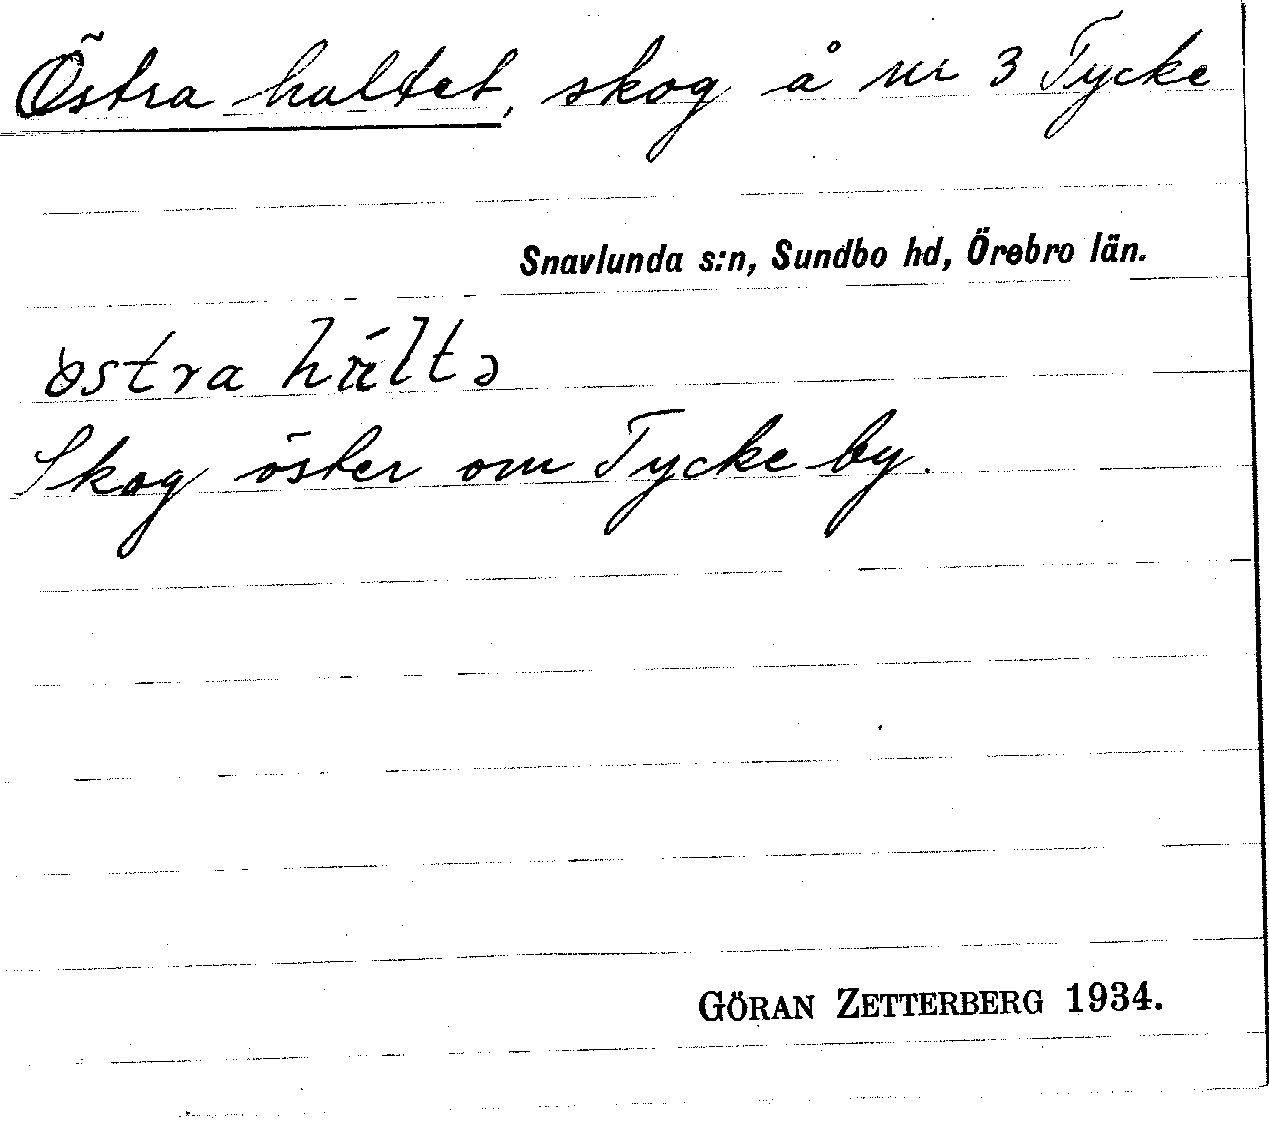 Östra hultet, skog å nr 3 Tycke
Snavlunda s:n, Sundbo hd, Örebro län.
Skog öster om Tycke by.
GÖRAN ZETTERBERG 1934.